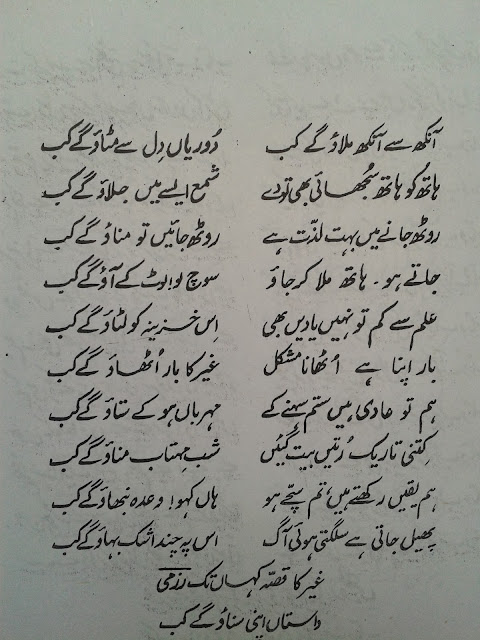 آنکھ سے آنکھ ملاؤ گے کب دُوریاں دِل سے مٹاؤ گے کب
ہاتھ کو ہاتھ سُجھائی بھی تو دے شمع ایسے میں جلاؤ گے کب
روٹھ جانے میں بہت لذّت ہے روٹھ جائیں تو مناؤ گے کب
جاتے ہو۔ ہاتھ ملا کر جاؤ سوچ لو! لوٹ کے آؤ گے کب
علم سے کم تو نہیں یادیں بھی اِس خزینہ کو لٹاؤ گے کب
بار اپنا ہے اُٹھانا مشکل غیر کا بار اُٹھاؤ گے کب
ہم تو عادی ہیں ستم سہنے کے مہرباں ہو کے ستاؤ گے کب
کِتنی تاریک رُتیں بیت گئیں شبِ مہتاب مناؤ گے کب
ہم یقیں رکھتے ہیں، تم سچّے ہو ہاں کہو! وعدہ نبھاؤ گے کب
پھیل جاتی ہے سلگتی ہوئی آگ اس پہ چند اشک بہاؤ گے کب
غیر کا قصّہ کہاں تک رزمی
داستاں اپنی سناؤ گے کب